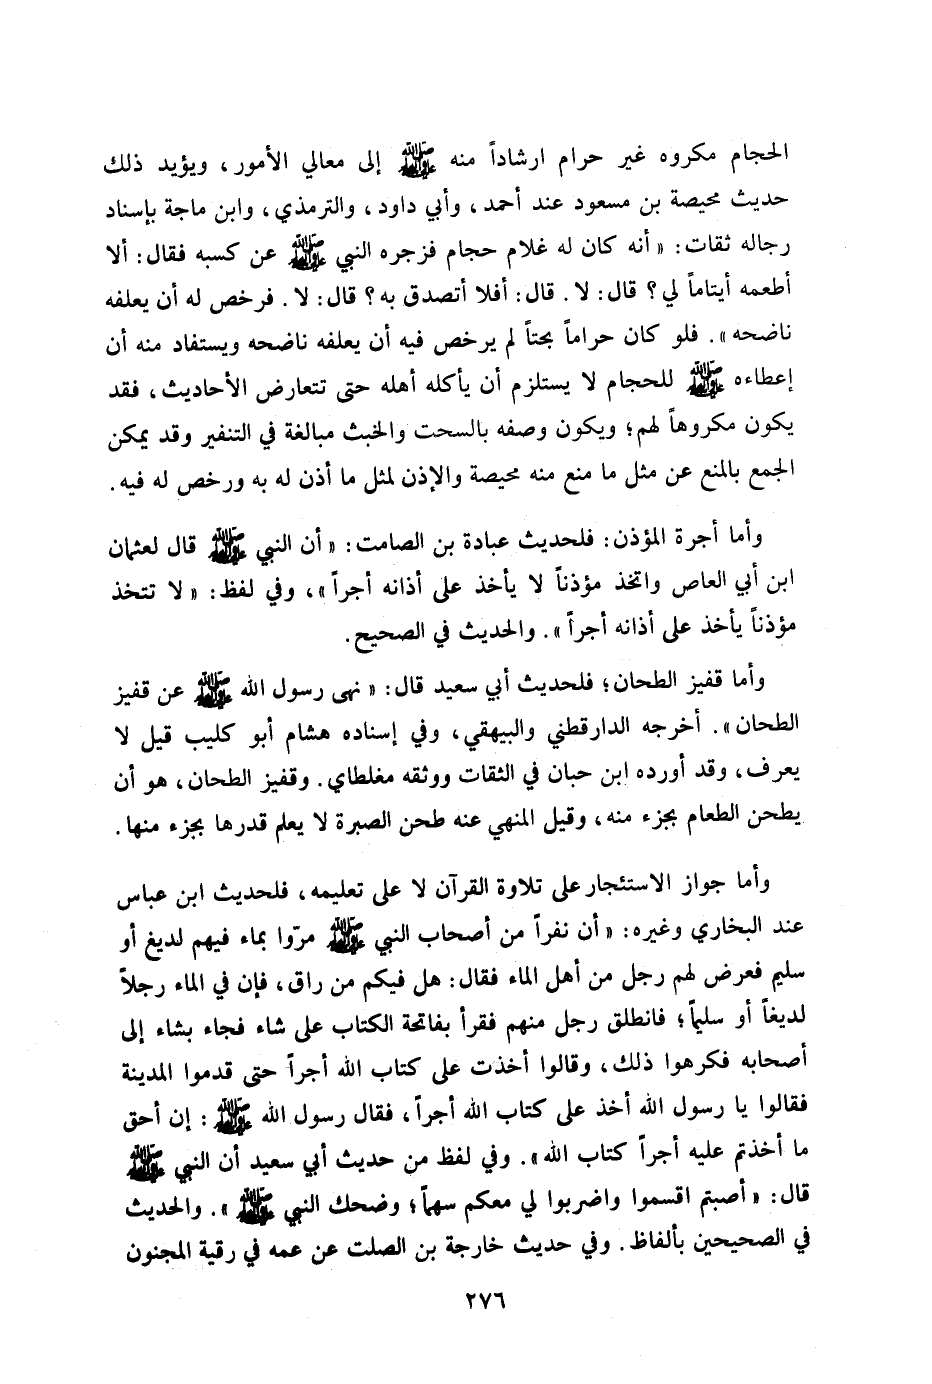 الحجام مكروه غير حرام ارشاداً منه ﷺ إلى معالي الأمور، ويؤيد ذلك
حديث محيصة بن مسعود عند أحمد، وأبي داود، والترمذي، وابن ماجة بإسناد
رجاله ثقات: « أنه كان له غلام حجام فزجره النبي ﷺ عن كسبه فقال: ألا
أطعمه أيتاماً لي؟ قال: لا. قال: أفلا أتصدق به؟ قال: لا. فرخص له أن يعلفه
ناضحه ». فلو كان حراماً بحتاً لم يرخص فيه أن يعلفه ناضحه ويستفاد منه أن
إعطاءه ﷺ للحجام لا يستلزم أن يأكله أهله حتى تتعارض الأحاديث، فقد
يكون مكروهاً لهم؛ ويكون وصفه بالسحت والخبث مبالغة في التنفير وقد يمكن
الجمع بالمنع عن مثل ما منع منه محيصة والإذن لمثل ما أذن له به ورخص له فيه.
وأما أجرة المؤذن: فلحديث عبادة بن الصامت: « أن النبي ﷺ قال لعثمان
ابن أبي العاص واتخذ مؤذناً لا يأخذ على أذانه أجراً »، وفي لفظ: « لا تتخذ
مؤذناً يأخذ على أذانه أجراً ». والحديث في الصحيح.
وأما قفيز الطحان؛ فلحديث أبي سعيد قال: « نهى رسول الله ﷺ عن قفيز
الطحان ». أخرجه الدارقطني والبيهقي، وفي إسناده هشام أبو كليب قيل لا
يعرف، وقد أورده ابن حبان في الثقات ووثقه مغلطاي. وقفيز الطحان، هو أن
يطحن الطعام بجزء منه، وقيل المنهي عنه طحن الصبرة لا يعلم قدرها بجزء منها.
وأما جواز الاستئجار على تلاوة القرآن لا على تعليمه، فلحديث ابن عباس
عند البخاري وغيره: « أن نفراً من أصحاب النبي ﷺ مرّوا بماء فيهم لديغ أو
سليم فعرض لهم رجل من أهل الماء فقال: هل فيكم من راق، فإن في الماء رجلاً
لديغاً أو سليماً؛ فانطلق رجل منهم فقرأ بفاتحة الكتاب على شاء فجاء بشاء إلى
أصحابه فكرهوا ذلك، وقالوا أخذت على كتاب الله أجراً حتى قدموا المدينة
فقالوا يا رسول الله أخذ على كتاب الله أجراً، فقال رسول الله ﷺ: إن أحق
ما أخذتم عليه أجراً كتاب الله ». وفي لفظ من حديث أبي سعيد أن النبي ﷺ
قال: « أصبتم اقسموا واضربوا لي معكم سهماً؛ وضحك النبي ﷺ ». والحديث
في الصحيحين بألفاظ. وفي حديث خارجة بن الصلت عن عمه في رقية المجنون
٢٧٦